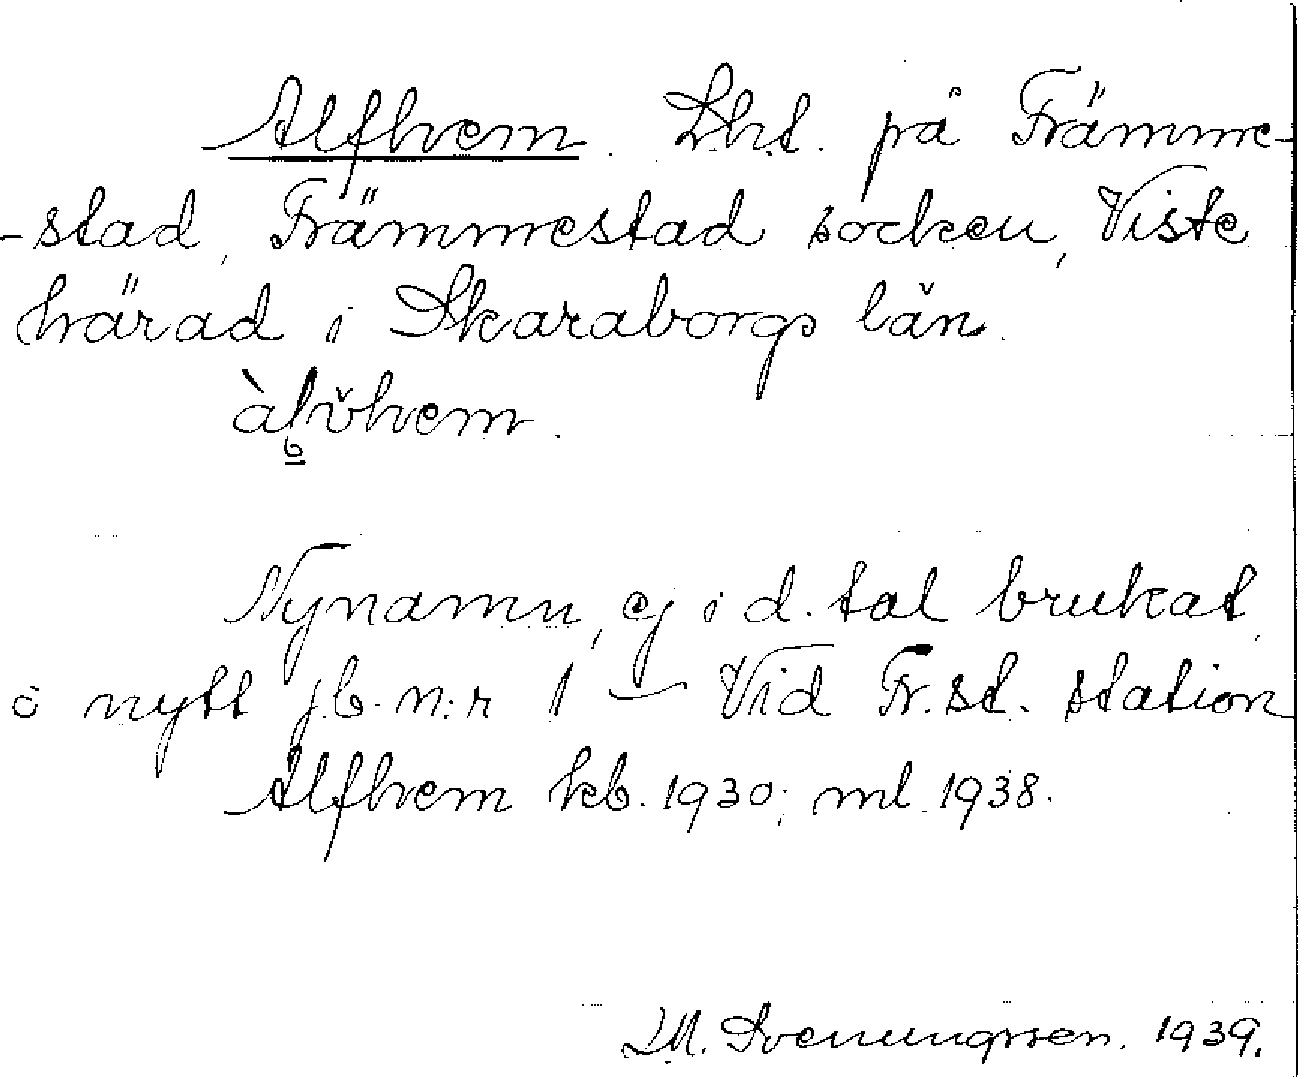 Alfhem. Lht. på Främme-
-stad, Främmestad socken, Viste
härad i Skaraborgs län.
àlv̆hem.
Nynamn, ej i d. tal brukat,
å nytt jb. n:r 1 — Vid Fr.st. station
Alfhem kb. 1930; ml. 1938.
Svenungsson. 1939.